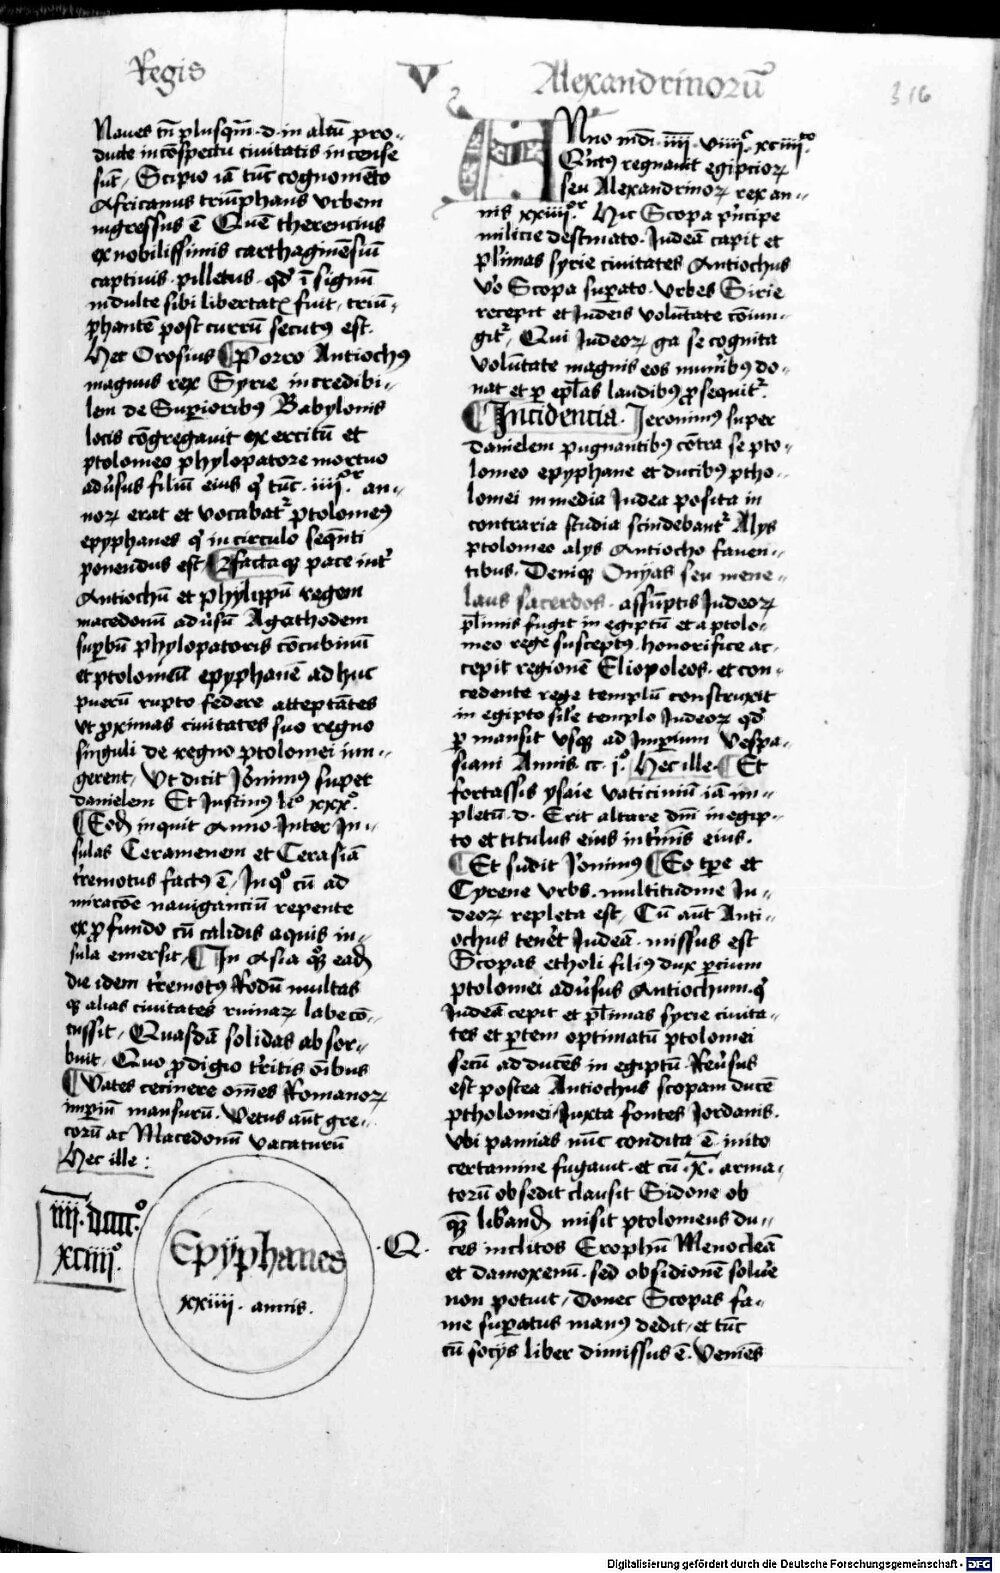 Regis V Alexandrinorū
316
Naues tn̄ plusqm̄ · d · in altū pro-
ducte in cōspectu ciuitatis incense
sūt / Scipio iā tūc cognomēto
Africanus triūphans vrbem
ingressus ē Quē therencius
ex nobilissimis carthaginēsiū
captiuis · pilletus · qd̓ ī signū
indulte sibi libertatꝭ fuit / triū-
phantē post currū secutꝰ est ·
Hec Orosius ¶ Porro Antiochꝰ
magnus rex Syrie incredibi-
lem de Suꝑioribꝰ Babylonis
locis cōgregauit exercitū et
ptolomeo phylopatore mortuo
adūsus filiū eius qͥ tūc · iiijᵒʳ · an-
noꝝ erat et vocabatᷣ ptolomeꝰ
epyphanes qͥ in circulo seqn̄ti
ponendus est ¶ Factaqꝫ pace int̓
Antiochū et phylippū regem
macedonū adūsū Agathodem
suꝑbū phylopatoris cōcubinū
et ptolomeū epyphanē adhuc
puerū rupto federe atteptātes
vt ꝓximas ciuitates suo regno
singuli de regno ptolomei iun-
gerent / Vt dicit Jeronimꝰ super
danielem Et Justinꝰ liº xxxº ·
¶ Eod̄ inquit Anno Inter In-
sulas Ceramenem et Cerasiā
t̓remotus factꝰ ē / In qͦ cū ad
miracōe nauiganciū repente
ex ꝓfundo cū calidis aquis in-
sula emersit / ¶ In Asia qͦꝫ ead̄
die idem t̓remotꝰ Rodū multas
qꝫ alias ciuitates ruinaꝝ labe cō-
cussit / Quasdā solidas absor-
buit / Quo ꝓdigio t̓ritis oībus
¶ Vates cecinere om̄es Romanoꝝ
imꝑiū mansurū · Vetus aūt gre-
corū ac Macedonū vacaturū
Hec ille :
iiij · dccccº
xciiijº ·
Epÿphanes
xxiiij · annis ·
Anno mdi · iiij · viiijᶜ · xciiijᵗᵒ ·
Qͥntꝰ regnauit egipcioꝝ
seu Alexandrinoꝝ rex an-
nis xxiiijᵒʳ · Hic Scopa pͥncipe
milicie destinato · Judeā capit et
pl̓imas syrie ciuitates Antiochus
v̓o Scopa suꝑato · vrbes Sirie
recepit et Judeis volūtate cōiun-
gitᷣ / Qui Judeoꝝ ꝗa se cognita
volūtate magnis eos munībꝰ do-
nat et ꝑ ep̄las laudibꝰ ꝓsequitᷣ
¶ Incidencia · Jeronimꝰ super
danielem pugnantibꝰ cōtra se pto-
lomeo epyphane et ducibꝰ ptho-
lomei in media Judea posita in
contraria studia scindebantᷣ Alys
ptolomeo alys Antiocho fauen-
tibus · Deniqꝫ Onyas seu mene-
laus sacerdos · assūptis Judeoꝝ
pl̓imis fugit in egiptū et a ptolo-
meo rege susceptꝰ · honorifice ac-
cepit regionē Eliopoleos · et con-
cedente rege templū construxit
in egipto sil̓e templo Judeoꝝ qd̓
ꝑmansit vsqꝫ ad Imꝑium Vespa-
siani Annis · cc · jº · Hec ille · ¶ Et
fortassis ysaie vaticiniū iā im-
pletū · d · Erit altare dn̄i in egip-
to et titulus eius int̓minis eius ·
¶ Et sudit Jeronimꝰ ¶ Eo tꝑe et
Cyrene vrbs · multitudine Ju-
deoꝝ repleta est / Cū aūt Anti-
ochus tenēt Judeā · missus est
Scopas etholi filiꝰ dux ꝑcium
ptolomei adūsus Antiochum · qͥ
Judeā cepit et pl̓imas syrie ciuita-
tes et ꝑtem optimatū ptolomei
secū adducēs in egiptū · Reūsus
est postea Antiochus scopam ducē
ptholomei · Juxta fontes Jordanis ·
vbi pamias nūc condita ē · inito
certamine fugauit · et cū · x̄ · arma-
torū obsedit clausit Sidone ob
· Q · qᷓꝫ lib̓and̄ misit ptolomeus du-
ces inclitos Erophū Menocleā
et damoxenū · sed obsidionē solūe
non potuit / Donec Scopas fa-
me suꝑatus manꝰ dedit / et tūc
cū socÿs liber dimissus ē · Veniēs
Digitalisierung gefördert durch die Deutsche Forschungsgemeinschaft - DFG